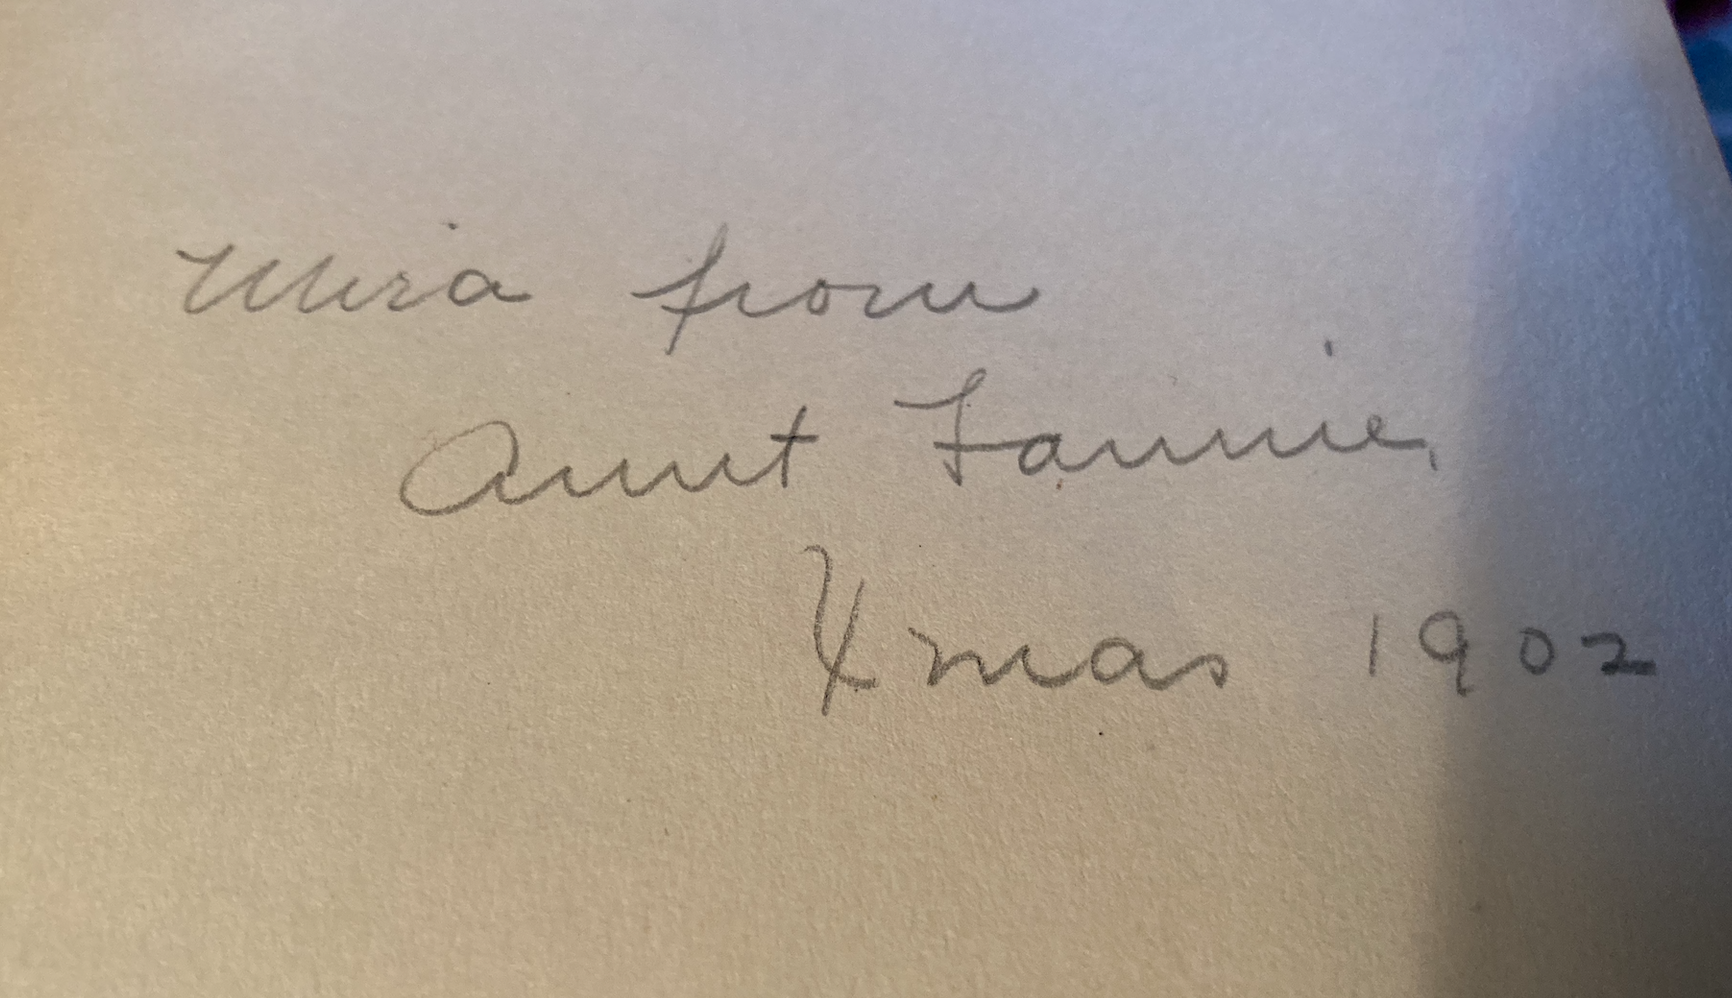 Mira from
Aunt Fannie.
Xmas 1902